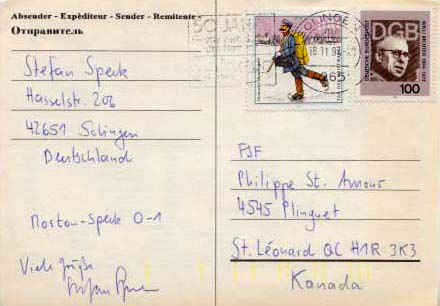 Absender - Expéditeur - Sender - Remitente -
Отправитель
Stefan Speck
Hasselstr. 206
42651 Solingen
Deutschland
Morton-Speck 0-1
Viele Grüße
50 JAHRE
SOLINGEN
18.11.97
DEUTSCHE BUNDESPOST
DGB
100
FSF
Philippe St. Amour
4545 Plinguet
St. Léonard QC H1R 3K3
Kanada